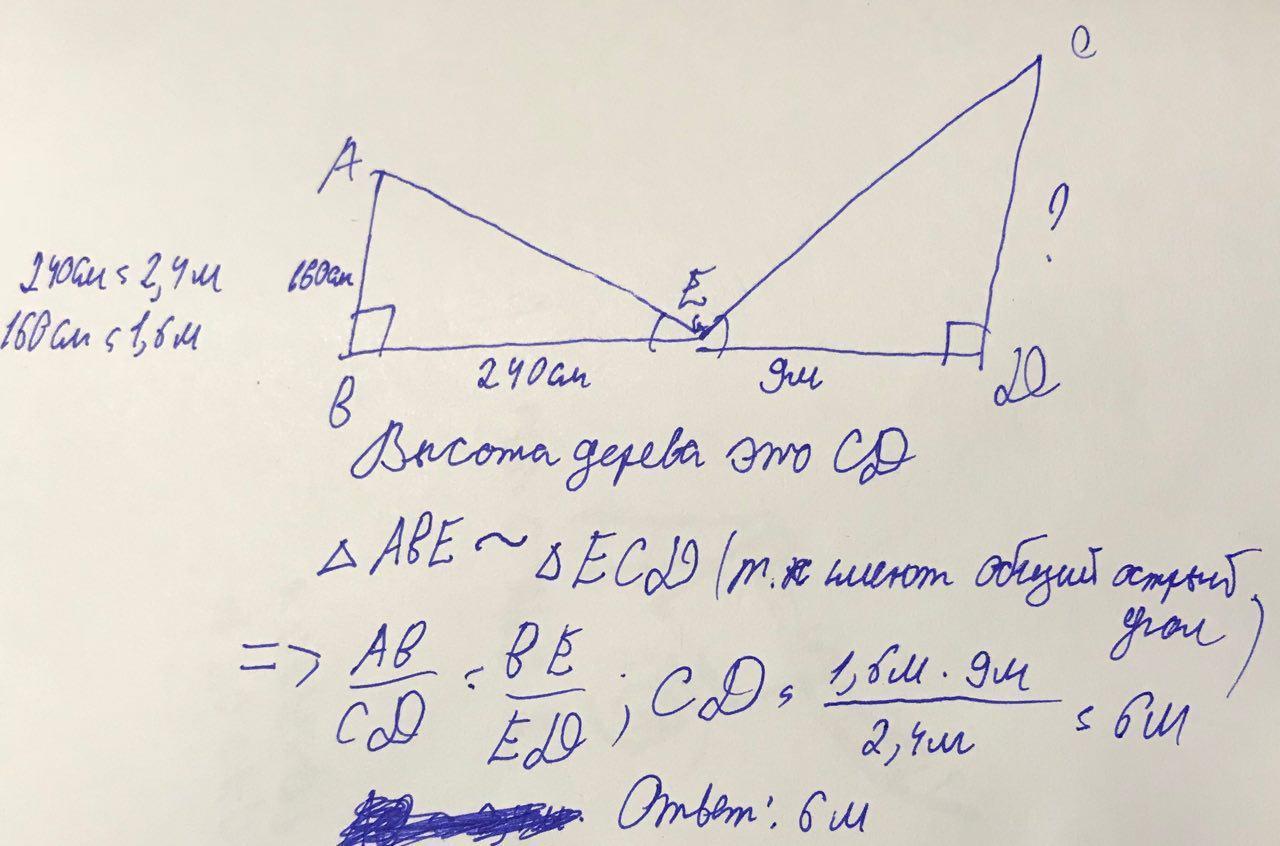 C
A
?
E
240см = 2,4м
160см
160см = 1,6м
B
240см
9м
D
Высота дерева это CD
△ ABE ~ △ ECD (т.к имеют общий острый угол)
=> AB/CD = BE/ED ; CD = 1,6м · 9м / 2,4м = 6м
Ответ: 6м